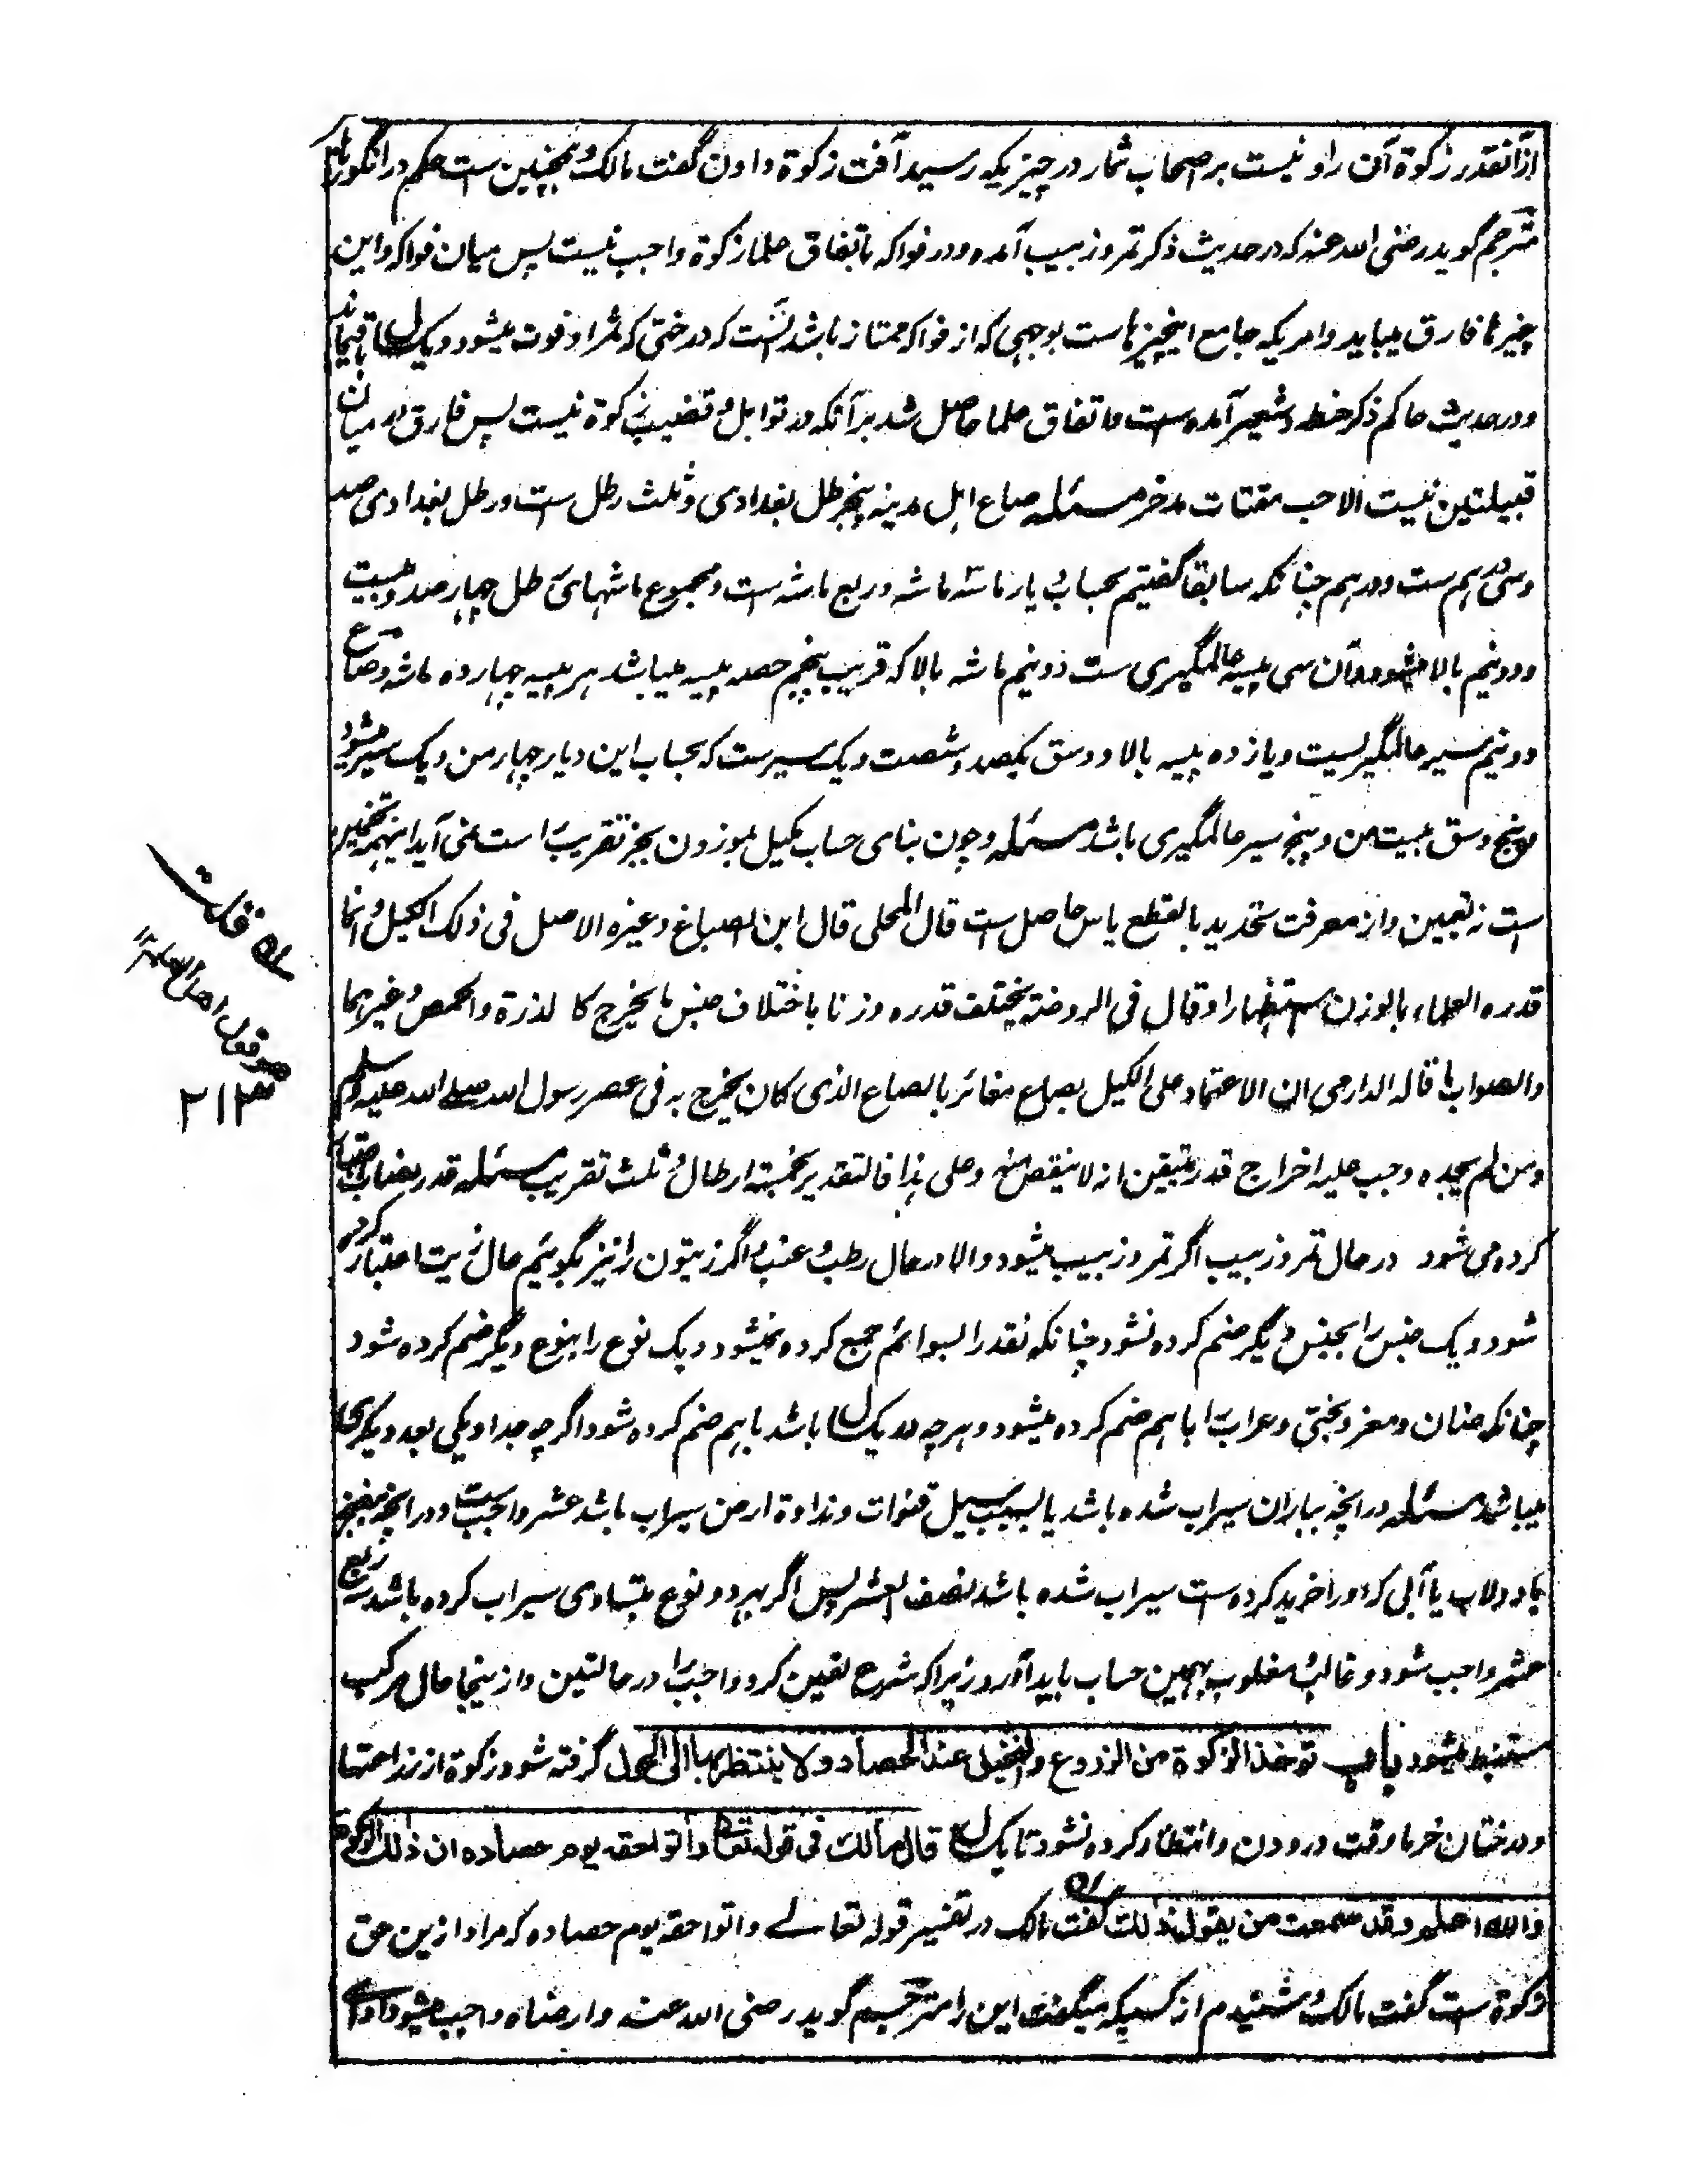 ازآنقدر زکوة آن را و نیست بر اصحاب ثمار در چیزیکه رسید آفت زکوة دادن گفت مالک و همچنین ست حکم در انگورها
مترجم گوید رضی الله عنه که در حدیث ذکر تمر و زبیب آمده و در فواکه باتفاق علما زکوة واجب نیست پس میان فواکه و این
چیزها فارق میباید و امریکه جامع اینچیزهاست بوجهی که از فواکه ممتاز باشد آنست که درختی که ثمر او قوت میشود و یک سال باقیماند
و در حدیث حاکم ذکر حنطه و شعیر آمده ست و اتفاق علما حاصل شد بر آنکه در توابل و قضیب زکوة نیست پس فارق در میان
قبیلتین نیست الا حب مقتات مدخر مسئله صاع اهل مدینه پنج رطل بغدادی و ثلث رطل ست و رطل بغدادی صد
و سی درهم ست و درهم چنانکه سابقا گفتیم بحساب این دیار ماشه و ربع ماشه ست و مجموع ماشهای رطل چهار صد و بیست
و دو نیم بالا میشود و آن سی پیسه عالمگیری ست دو نیم ماشه بالا که قریب پنجم حصه پیسه میباشد هر پیسه چهارده ماشه و صاع
دو نیم سیر عالمگیریست و یازده پیسه بالا و وسق یکصد و شصت و یک سیرست که بحساب این دیار چهار من و یک سیر میشود
و پنج وسق بیست من و پنج سیر عالمگیری باشد مسئله و چون بنای حساب مکیل بموزون بجز تقریب راست نمی آید اینهمه تخمین
است نه تعیین و از معرفت تحدید بالقطع یاس حاصل ست قال المحلی قال ابن الصباغ و غیره الاصل فی ذلک الکیل و انما
قدره العلماء بالوزن استظهارا و قال فی الروضة یختلف قدره وزنا باختلاف جنس ما یخرج کا لذرة و الحمص و غیرهما
و الصواب ما قاله الدارمی ان الاعتماد علی الکیل بصاع مغائر بالصاع الذی کان یخرج به فی عصر رسول الله صلے الله علیه وسلم
و من لم یجده وجب علیه اخراج قدر یتیقن انه لا ینقص منه و علی هذا فالتقدیر بخمسة ارطال و ثلث تقریب مسئله قدر نصاب اعتبار
کرده می شود در حال تمر و زبیب اگر تمر و زبیب میشود و الا در حال رطب و عنب و اگر زیتون را نیز بگوئیم حال زیت اعتبار کرده
شود و یک جنس را بجنس دیگر ضم کرده نشود چنانکه نقد را بسوائم جمع کرده نمیشود و یک نوع را بنوع دیگر ضم کرده شود
چنانکه ضان و معز و بختی و عراب را باهم ضم کرده میشود و هر چه در یک سال باشد باهم ضم کرده شود اگر چه جداد یکی بعد دیگری
میباشد مسئله در انچه بباران سیراب شده باشد یا بسبب سیل قنوات و نداوة ارض سیراب باشد عشر واجب ست و در انچه بنضح
یا دولاب یا آبی که او را خرید کرده ست سیراب شده باشد نصف العشر پس اگر بهر دو نوع بتساوی سیراب کرده باشد ربع
عشر واجب شود و غالب و مغلوب بهمین حساب باید آورد زیرا که شرع تعین کرد واجب را در حالتین و ازینجا حال مرکب
مستنبط میشود باب تؤخذ الزکوة من الزروع و النخیل عند الحصاد و لا ینتظر بها الی الحول گرفته شود زکوة از زراعتها
و درختان خرما وقت درودن و انتظار کرده نشود تا یک سال قال مالک فی قوله تعالی و اتوا حقه یوم حصاده ان ذلک الزکوة
و الله اعلم و قد سمعت من یقول ذلک گفت مالک در تفسیر قوله تعالے و اتوا حقه یوم حصاده که مراد ازین حق
زکوة ست گفت مالک و شنیدم از کسیکه میگفت این را مترجم گوید رضی الله عنه و ارضاه واجب میشود ادای
۲۱۳